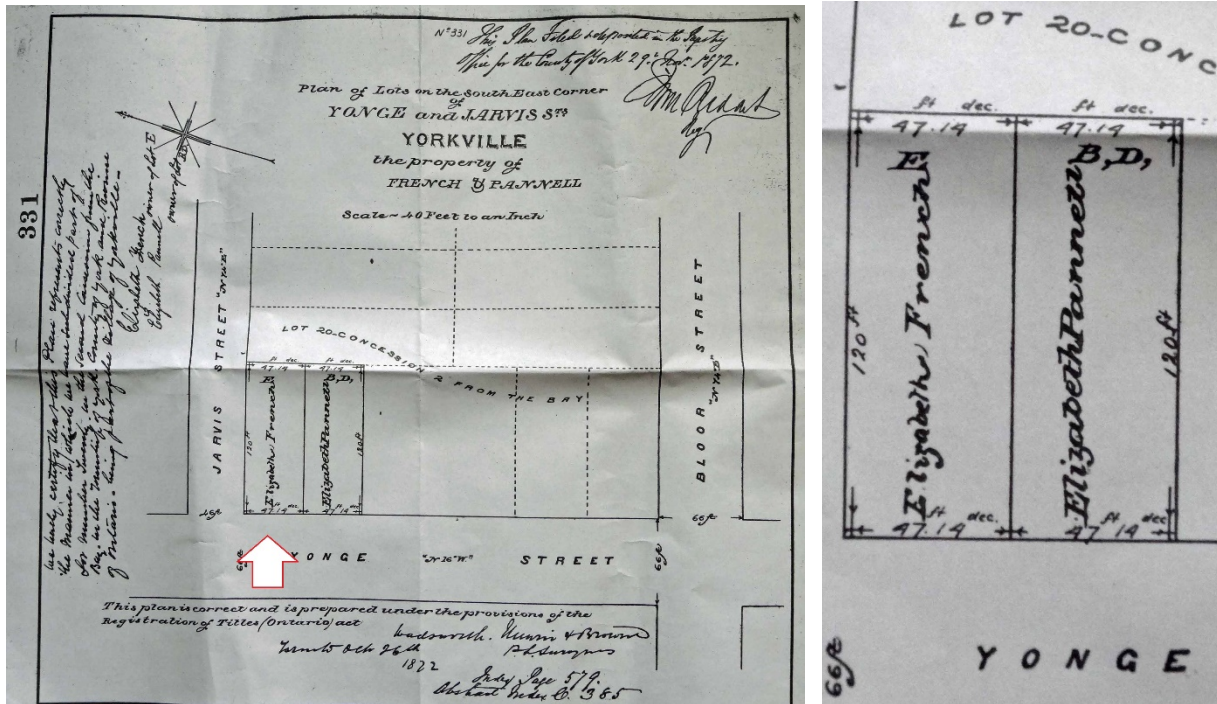 No 331 This Plan Filed & deposited in the Registry
Office for the County of York 29th Nov. 1872.
Plan of Lots on the South East Corner
of
YONGE and JARVIS STS
YORKVILLE
the property of
FRENCH & PANNELL
Scale ~ 40 Feet to an Inch
331
We hereby certify that this Plan represents correctly
the manner in which we have subdivided part of
Lot number Twenty in the second Concession from the
Bay, in the Township of York County of York and Province
of Ontario - being part of the Village of Yorkville -
Elizabeth French owner of Lot E
Elizabeth Pannell owner of Lot B.D.
JARVIS STREET
BLOOR STREET
LOT 20-CONCESSION 2 FROM THE BAY
ft dec. ft dec.
47.14 47.14
E B,D,
Elizabeth French
Elizabeth Pannell
120 ft
120 ft
47.14 ft dec. 47.14 ft dec.
66 ft
66 ft
66 ft
YONGE "N 16° W." STREET
This plan is correct and is prepared under the provisions of the
Registration of Titles (Ontario) act
Wadsworth, Unwin & Brown
Toronto Oct 26th P.L. Surveyors
1872
Index Page 579.
Abstract Index C. 385
LOT 20-CONC
ft dec. ft dec.
47.14 47.14
E B,D,
Elizabeth French
Elizabeth Pannell
120 ft
120 ft
ft dec. ft dec.
47.14 47.14
66 ft
YONGE